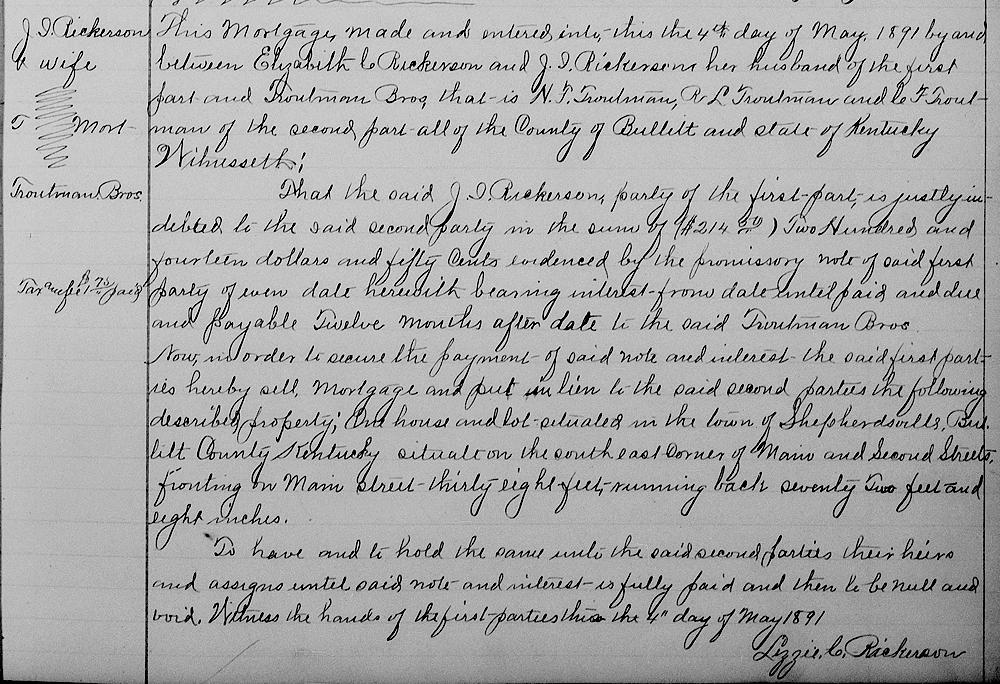 J. I. Rickerson
& wife
To Mort-
Troutman Bros.
Tax on fee 1 75 paid
This Mortgage, made and entered into, this the 4th day of May, 1891 by and
between Elizabeth C Rickerson and J. I. Rickerson her husband of the first
part and Troutman Bros, that is N. F. Troutman, R L Troutman and C F Trout-
man of the second part all of the County of Bullitt and state of Kentucky
Witnesseth;
That the said J I Rickerson, party of the first part, is justly in-
debted to the said second party in the sum of ($214 50) Two Hundred and
fourteen dollars and fifty Cents evidenced by the promissory note of said first
party of even date herewith bearing interest from date until paid and due
and payable Twelve months after date to the said Troutman Bros
Now, in order to secure the payment of said note and interest the said first part-
ies hereby sell, Mortgage and put in lien to the said second parties the following
described property; One house and lot situated in the town of Shepherdsville, Bul-
litt County Kentucky situate on the south east Corner of Main and Second Streets,
fronting on Main street thirty eight feet, running back seventy Two feet and
eight inches.
To have and to hold the same unto the said second parties their heirs
and assigns until said note and interest is fully paid and then to be null and
void. Witness the hands of the first parties this the 4th day of May 1891
Lizzie C. Rickerson